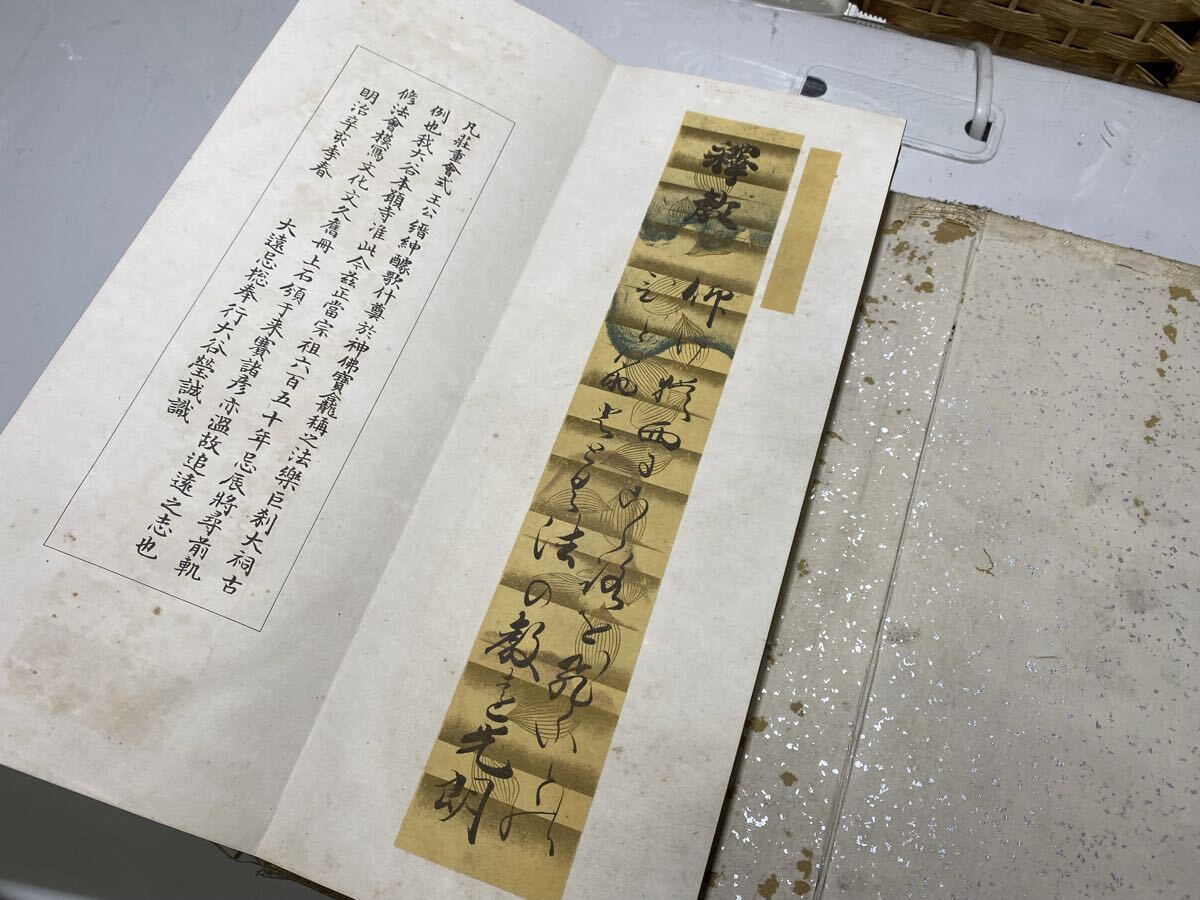 釋教
法の教を
光朗
凡莊重會式王公縉紳醵歌什奠於神佛寶龕稱之法樂巨刹大祠古
例也我大谷本願寺准此今茲正當宗祖六百五十年忌辰將尋前軌
修法會模寫文化文久舊冊上石頒于来賽諸彥亦溫故追遠之志也
明治辛亥季春
大遠忌総奉行大谷瑩誠識